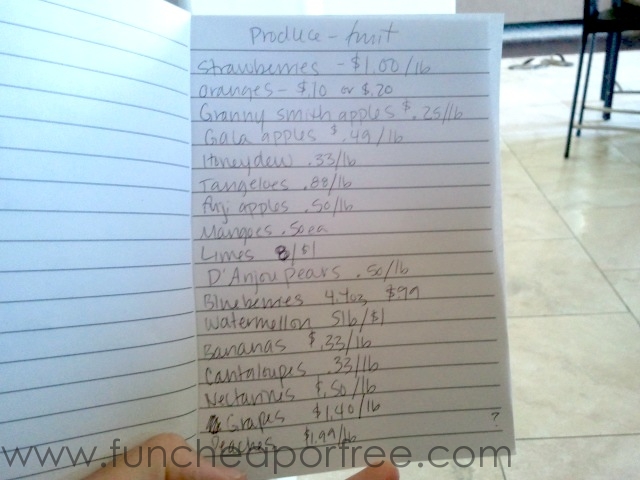 Produce - fruit
Strawberries - $1.00/lb
oranges - $.10 or $.20
Granny smith apples $.25/lb
Gala apples $.49/lb
Honeydew .33/lb
Tangeloes .88/lb
Fuji apples .50/lb
Mangoes .50 ea
Limes 8/$1
D'Anjou Pears .50/lb
Blueberries 4.4oz $.99
Watermellon 5lb/$1
Bananas $.33/lb
Cantaloupes .33/lb
Nectarines $.50/lb
Grapes $1.40/lb ?
Peaches $1.99/lb
www.funcheaporfree.com